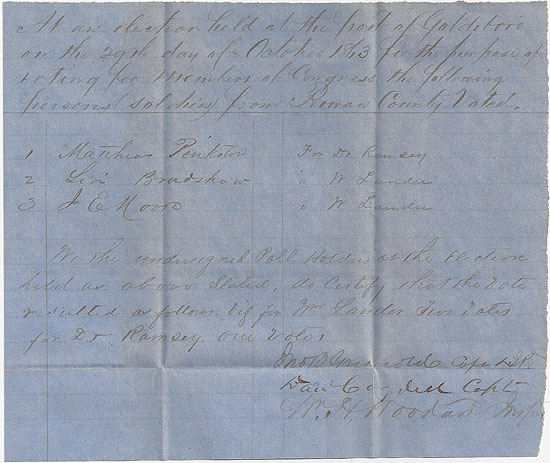 At an election held at the post of Goldsboro
on the 29th day of October 1863 for the purpose of
voting for Members of Congress the following
persons (soldiers) from Rowan County Voted,
1 Matthias Pinkston For Dr. Ramsey
2 Levi Bradshaw " W Lander
3 J E Moore " W Lander
We the undersigned Poll Holders at the Election
held as above Stated, do Certify that the Vote
resulted as follows. Viz for Wm Lander Two Votes
for Dr. Ramsey, one Vote,
Jno B Griswold Capt
Dan Cogdell Capt
W. H. Woodard